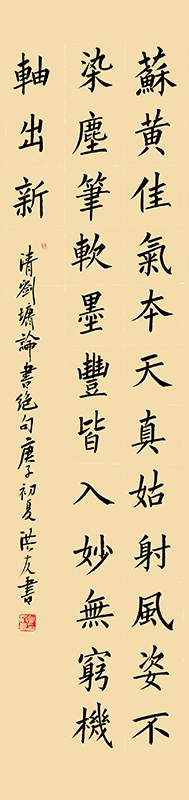 蘇黃佳氣本天真姑射風姿不
染塵筆軟墨豐皆入妙無窮機
軸出新
清劉墉論書絕句庚子初夏洪友書